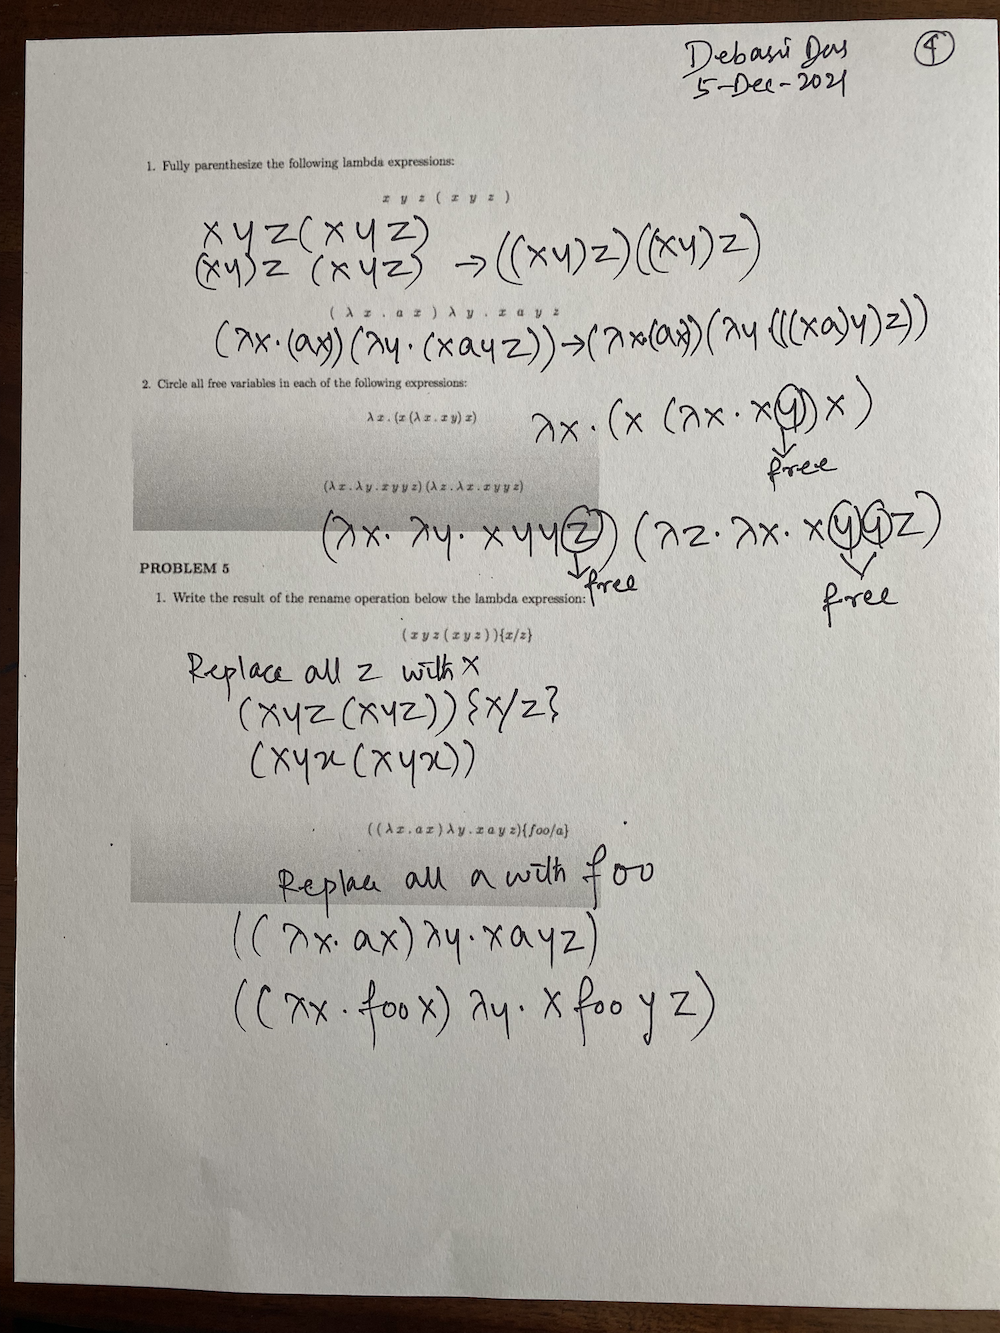 Debasri Das ④
5-Dec-2021
1. Fully parenthesize the following lambda expressions:
x y z ( x y z )
xyz(xyz)
(xy)z (xyz) → ((xy)z)((xy)z)
( λ x . a x ) λ y . x a y z
(λx.(ax))(λy.(xayz))→(λx(ax))(λy(((xa)y)z))
2. Circle all free variables in each of the following expressions:
λx.(x(λx.xy)x)
λx.(x (λx.xy)x)
free
(λx.λy.xyyz)(λz.λx.xyyz)
(λx. λy. xyyz) (λz. λx. xyyz)
free
free
PROBLEM 5
1. Write the result of the rename operation below the lambda expression:
(xyz(xyz)){x/z}
Replace all z with x
(xyz(xyz)){x/z}
(xyx(xyx))
((λx.ax)λy.xayz){foo/a}
Replace all a with foo
((λx.ax)λy.xayz)
((λx.foox) λy.x foo y z)